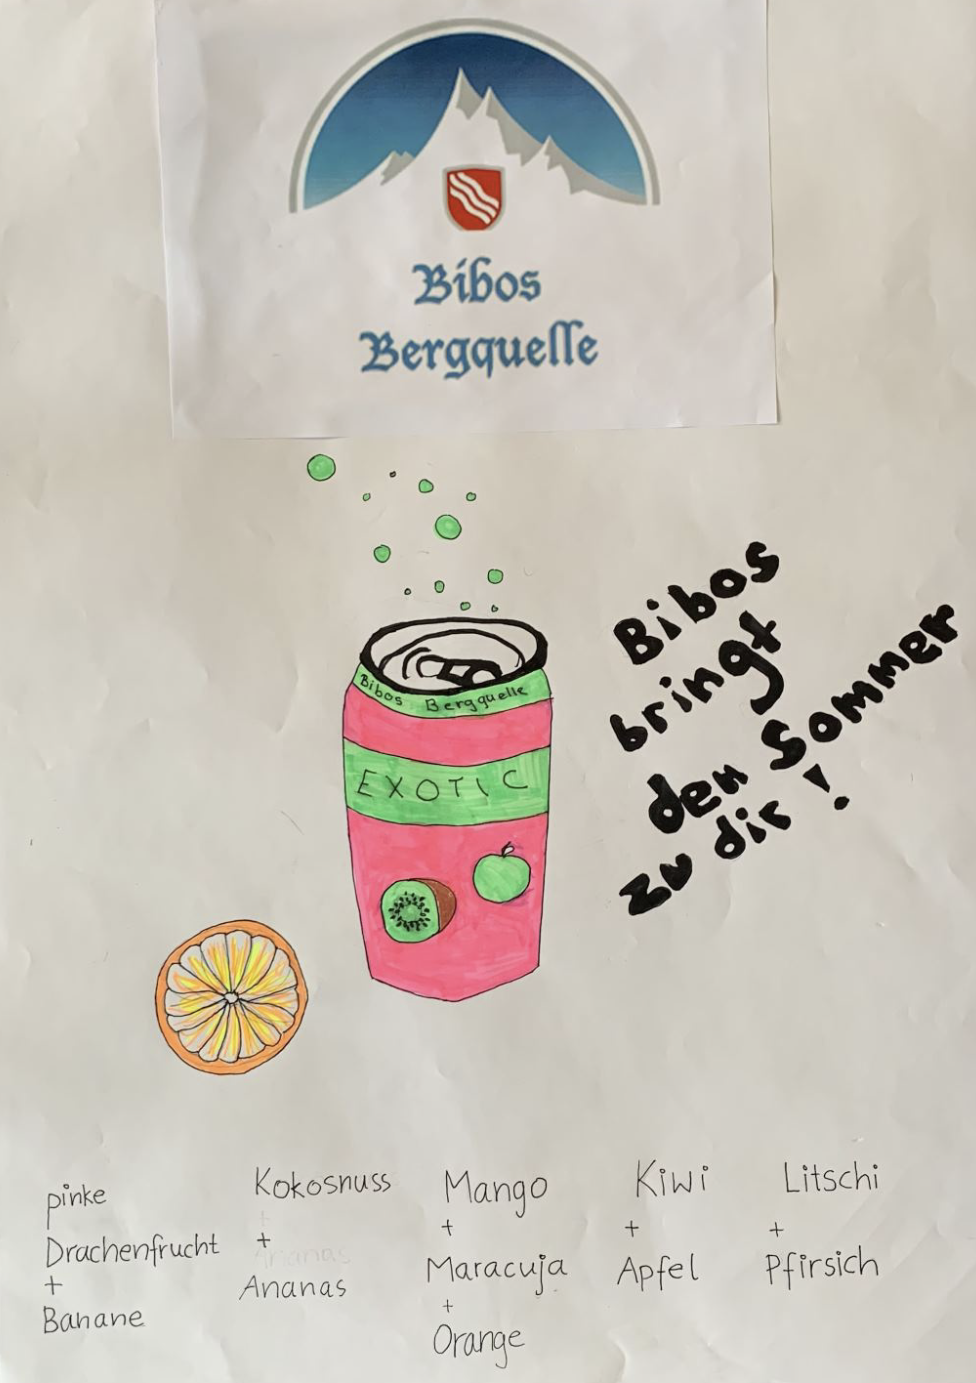 Bibos
Bergquelle
Bibos Bergquelle
EXOTIC
Bibos
bringt
den Sommer
zu dir!
pinke
Drachenfrucht
+
Banane
Kokosnuss
+
Ananas
Mango
+
Maracuja
+
Orange
Kiwi
+
Apfel
Litschi
+
Pfirsich